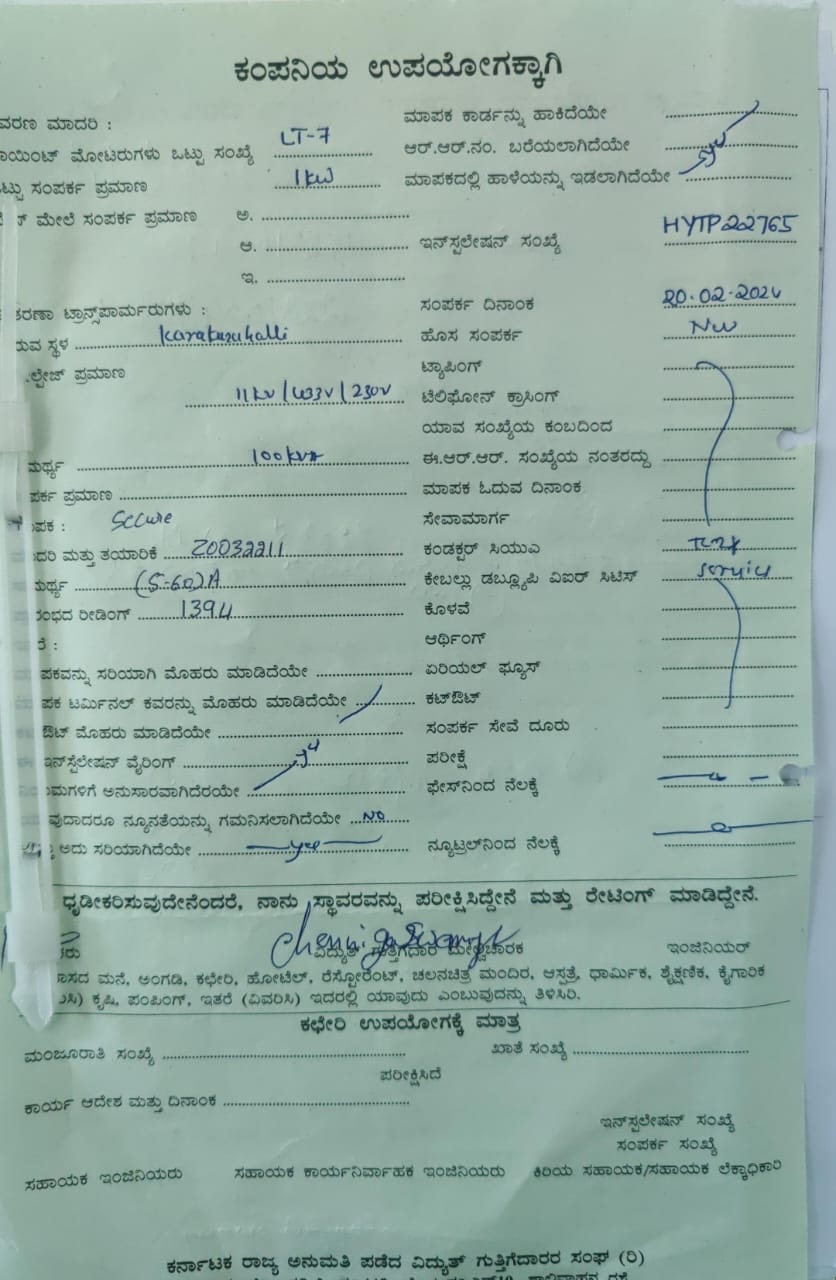 ಕಂಪನಿಯ ಉಪಯೋಗಕ್ಕಾಗಿ
ವರಣ ಮಾದರಿ : ಮಾಪಕ ಕಾರ್ಡನ್ನು ಹಾಕಿದೆಯೇ
ಾಯಿಂಟ್ ಮೋಟರುಗಳು ಒಟ್ಟು ಸಂಖ್ಯೆ LT-7 ಆರ್.ಆರ್.ನಂ. ಬರೆಯಲಾಗಿದೆಯೇ
ಟ್ಟು ಸಂಪರ್ಕ ಪ್ರಮಾಣ 1kW ಮಾಪಕದಲ್ಲಿ ಹಾಳೆಯನ್ನು ಇಡಲಾಗಿದೆಯೇ
ಮೇಲೆ ಸಂಪರ್ಕ ಪ್ರಮಾಣ ಅ.
ಆ. ಇನ್‌ಸ್ಪಲೇಷನ್ ಸಂಖ್ಯೆ HYTP22765
ಇ.
ಕರಣಾ ಟ್ರಾನ್ಸ್‌ಪಾರ್ಮರುಗಳು : ಸಂಪರ್ಕ ದಿನಾಂಕ 20-02-2024
ರುವ ಸ್ಥಳ ಹೊಸ ಸಂಪರ್ಕ
ಲ್ಟೇಜ್ ಪ್ರಮಾಣ ಟ್ಯಾಪಿಂಗ್
11kV/433V/230V ಟೆಲಿಫೋನ್ ಕ್ರಾಸಿಂಗ್
ಯಾವ ಸಂಖ್ಯೆಯ ಕಂಬದಿಂದ
ಮರ್ಥ್ಯ 100kVA ಈ.ಆರ್.ಆರ್. ಸಂಖ್ಯೆಯ ನಂತರದ್ದು
ಪರ್ಕ ಪ್ರಮಾಣ ಮಾಪಕ ಓದುವ ದಿನಾಂಕ
ಪಕ : Secure ಸೇವಾಮಾರ್ಗ
ದರಿ ಮತ್ತು ತಯಾರಿಕೆ Z0032211 ಕಂಡಕ್ಟರ್ ಸಿಯುಎ
ಮರ್ಥ್ಯ (5-60)A ಕೇಬಲ್ಲು ಡಬ್ಲ್ಯೂಪಿ ವಿಐರ್ ಸಿಟಿಸ್ service
ಂಭದ ರೀಡಿಂಗ್ 1394 ಕೊಳವೆ
ರೆ : ಆರ್ಥಿಂಗ್
ಪಕವನ್ನು ಸರಿಯಾಗಿ ಮೊಹರು ಮಾಡಿದೆಯೇ ಏರಿಯಲ್ ಫ್ಯೂಸ್
ಪಕ ಟರ್ಮಿನಲ್ ಕವರನ್ನು ಮೊಹರು ಮಾಡಿದೆಯೇ ಕಟ್‌ಔಟ್
ಔಟ್ ಮೊಹರು ಮಾಡಿದೆಯೇ ಸಂಪರ್ಕ ಸೇವೆ ದೂರು
ಇನ್‌ಸ್ಪಲೇಷನ್ ವೈರಿಂಗ್ ಪರೀಕ್ಷೆ
ಮಗಳಿಗೆ ಅನುಸಾರವಾಗಿದೆರಯೇ ಫೇಸ್‌ನಿಂದ ನೆಲಕ್ಕೆ
ವುದಾದರೂ ನ್ಯೂನತೆಯನ್ನು ಗಮನಿಸಲಾಗಿದೆಯೇ NO
ಅದು ಸರಿಯಾಗಿದೆಯೇ yes ನ್ಯೂಟ್ರಲ್‌ನಿಂದ ನೆಲಕ್ಕೆ
ಧೃಡೀಕರಿಸುವುದೇನೆಂದರೆ, ನಾನು ಸ್ಥಾವರವನ್ನು ಪರೀಕ್ಷಿಸಿದ್ದೇನೆ ಮತ್ತು ರೇಟಿಂಗ್ ಮಾಡಿದ್ದೇನೆ.
ರು ವಿದ್ಯುತ್ ಗುತ್ತಿಗೆದಾರ ಮೇಲ್ವಿಚಾರಕ ಇಂಜಿನಿಯರ್
ಾಸದ ಮನೆ, ಅಂಗಡಿ, ಕಛೇರಿ, ಹೋಟೆಲ್, ರೆಸ್ಟೋರೆಂಟ್, ಚಲನಚಿತ್ರ ಮಂದಿರ, ಆಸ್ಪತ್ರೆ, ಧಾರ್ಮಿಕ, ಶೈಕ್ಷಣಿಕ, ಕೈಗಾರಿಕ
ಕೃಷಿ, ಪಂಪಿಂಗ್, ಇತರೆ (ವಿವರಿಸಿ) ಇದರಲ್ಲಿ ಯಾವುದು ಎಂಬುವುದನ್ನು ತಿಳಿಸಿರಿ.
ಕಛೇರಿ ಉಪಯೋಗಕ್ಕೆ ಮಾತ್ರ
ಮಂಜೂರಾತಿ ಸಂಖ್ಯೆ ಖಾತೆ ಸಂಖ್ಯೆ
ಪರೀಕ್ಷಿಸಿದೆ
ಕಾರ್ಯ ಆದೇಶ ಮತ್ತು ದಿನಾಂಕ
ಇನ್‌ಸ್ಪಲೇಷನ್ ಸಂಖ್ಯೆ
ಸಂಪರ್ಕ ಸಂಖ್ಯೆ
ಸಹಾಯಕ ಇಂಜಿನಿಯರು ಸಹಾಯಕ ಕಾರ್ಯನಿರ್ವಾಹಕ ಇಂಜಿನಿಯರು ಕಿರಿಯ ಸಹಾಯಕ/ಸಹಾಯಕ ಲೆಕ್ಕಾಧಿಕಾರಿ
ಕರ್ನಾಟಕ ರಾಜ್ಯ ಅನುಮತಿ ಪಡೆದ ವಿದ್ಯುತ್ ಗುತ್ತಿಗೆದಾರರ ಸಂಘ (ರಿ)